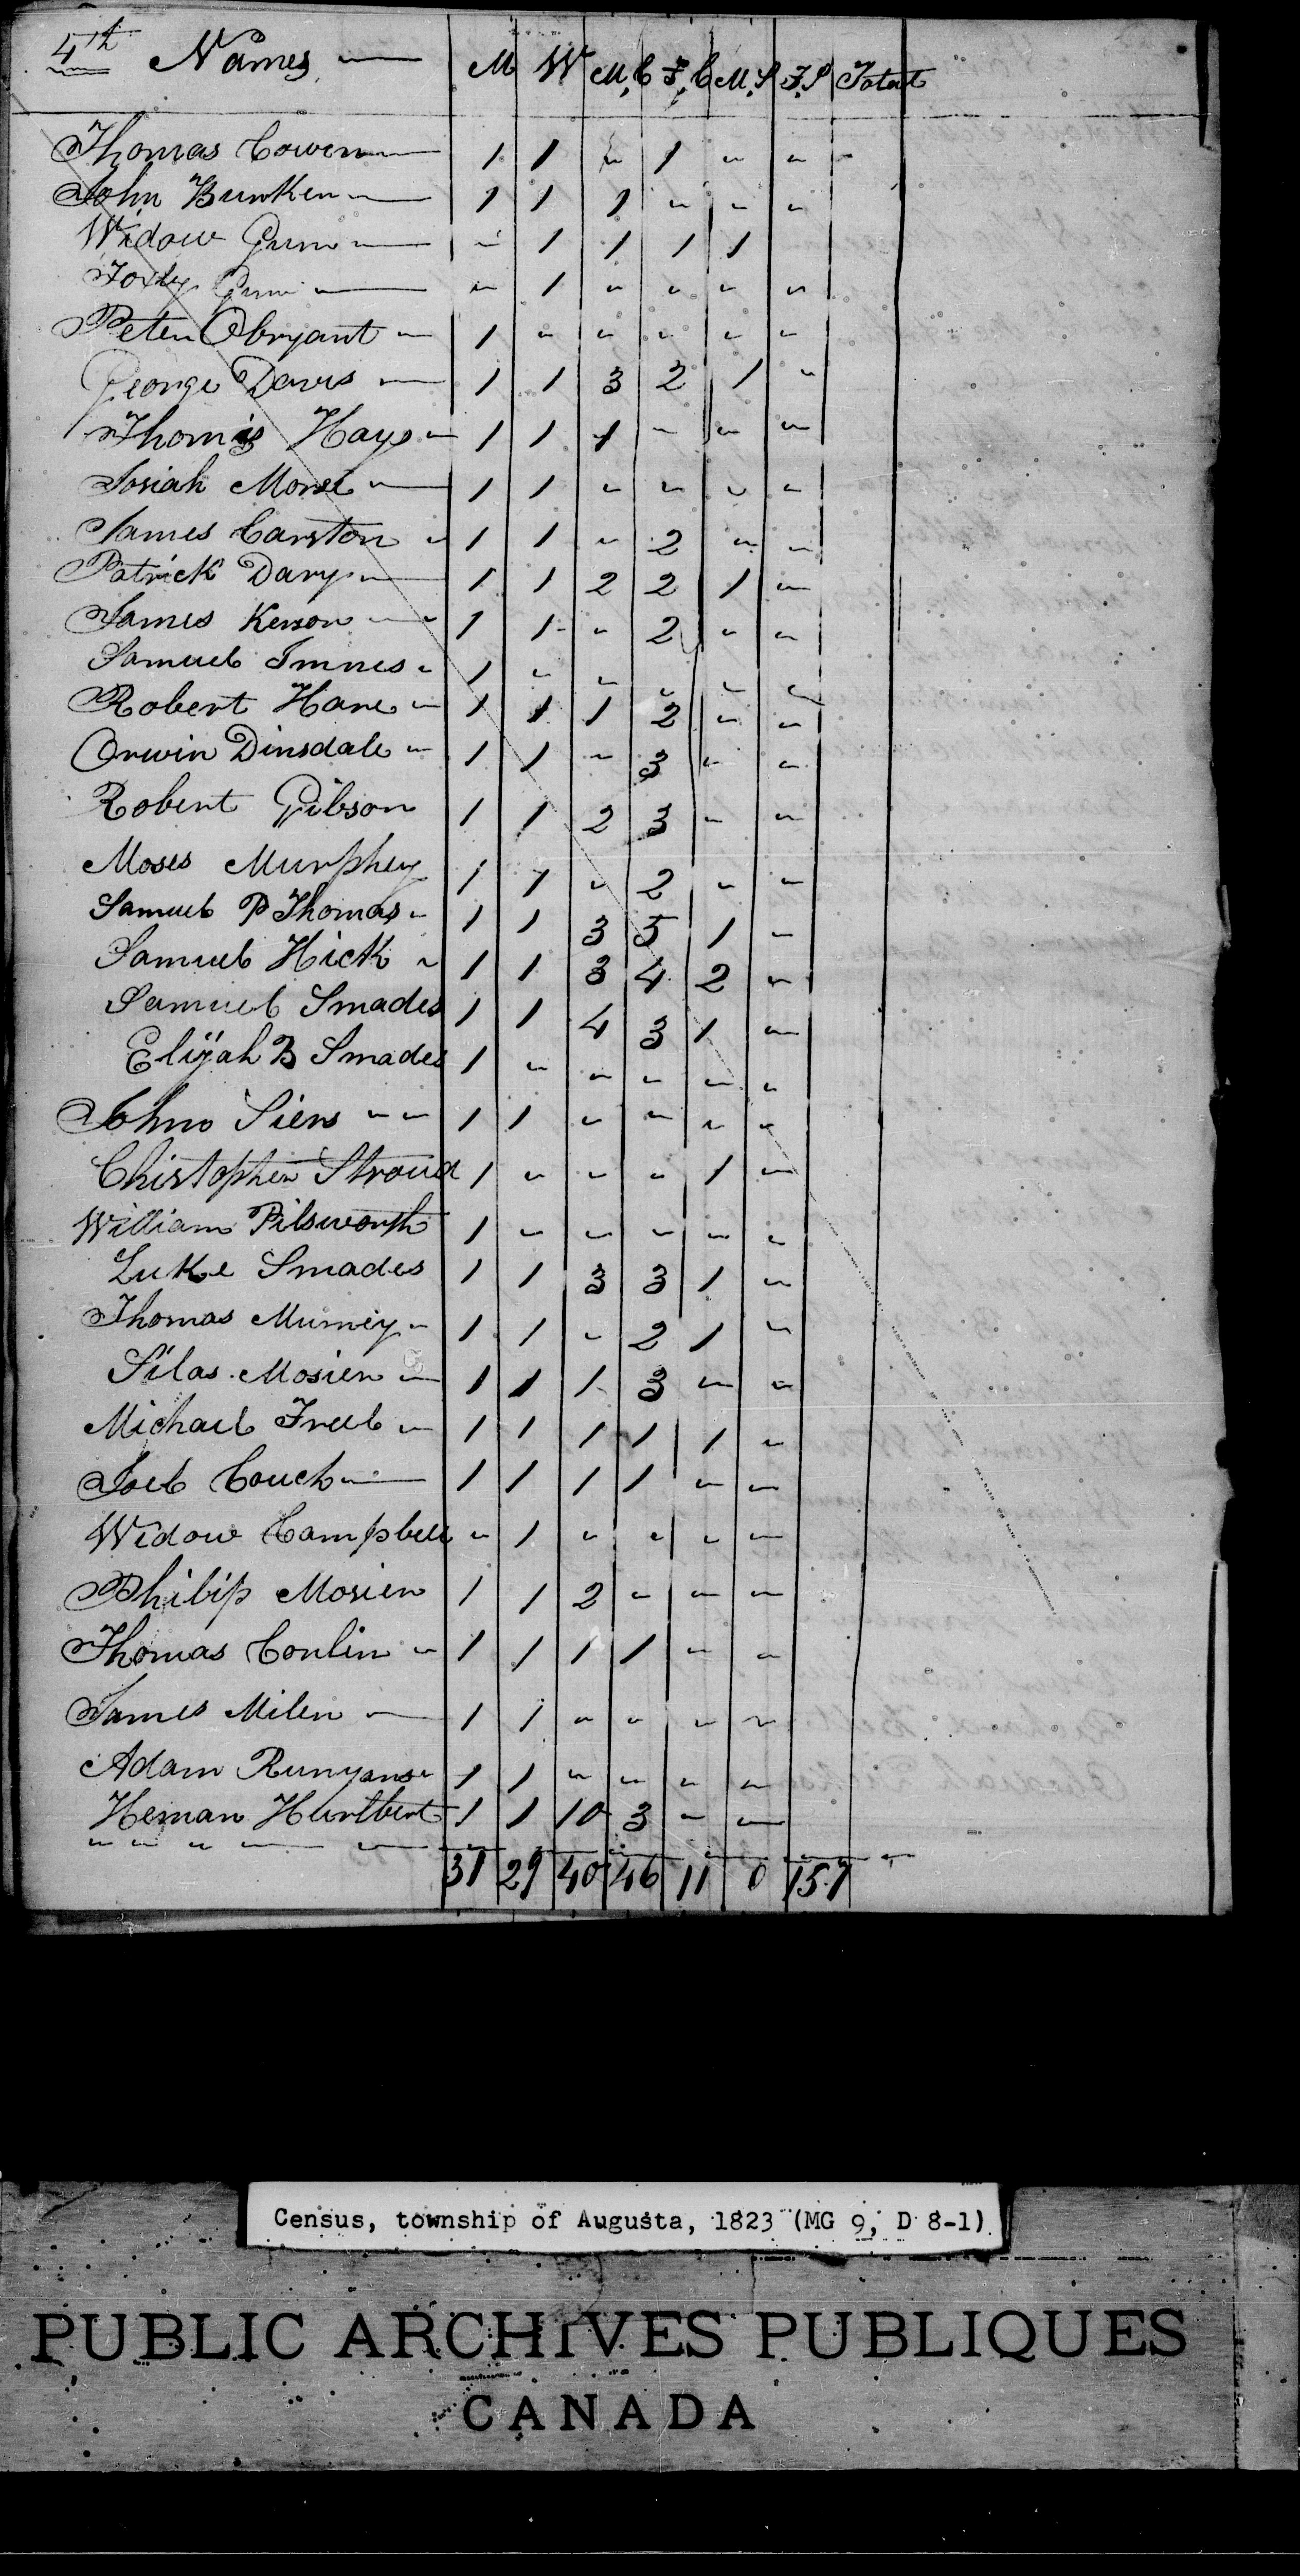 4th Names — M W M.C F.C M.S F.S Total
Thomas Cowen — 1 1 " 1 " "
John Bunken — 1 1 1 " " "
Widow Gunn — " 1 1 1 1
Foxly Gunn — " 1 " " " "
Peter Obryant — 1 " " " " "
George Davis — 1 1 3 2 1 "
Thomas Hays — 1 1 1 " " "
Josiah Morse — 1 1 " " " "
James Carston " 1 1 " 2 " "
Patrick Dary — 1 1 2 2 1 "
James Keeson — 1 1 " 2 " "
Samuel Imnes " 1 " " " " "
Robert Hare " 1 1 1 2 " "
Orwin Dinsdale " 1 1 " 3 " "
Robert Gibson 1 1 2 3 " "
Moses Murphey 1 1 " 2 " "
Samuel P Thomas " 1 1 3 5 1 "
Samuel Hick " 1 1 3 4 2 "
Samuel Smades 1 1 4 3 1 "
Elijah B Smades 1 " " " " "
John Siers " " 1 1 " " " "
Chistopher Stroud 1 " " " 1 "
William Pilsworth 1 " " " " "
Luke Smades 1 1 3 3 1 "
Thomas Murney " 1 1 " 2 1 "
Silas Mosien — 1 1 1 3 " "
Michael Freel " 1 1 1 1 1 "
Joel Couch — 1 1 1 1 " "
Widow Campbell " 1 " " " "
Philip Mosien 1 1 2 " " "
Thomas Conlin " 1 1 1 1 " "
James Milen — 1 1 " " " "
Adam Runyans " 1 1 " " " "
Heman Hurlbert 1 1 10 3 " "
31 29 40 46 11 0 157
Census, township of Augusta, 1823 (MG 9, D 8-1)
PUBLIC ARCHIVES PUBLIQUES
CANADA